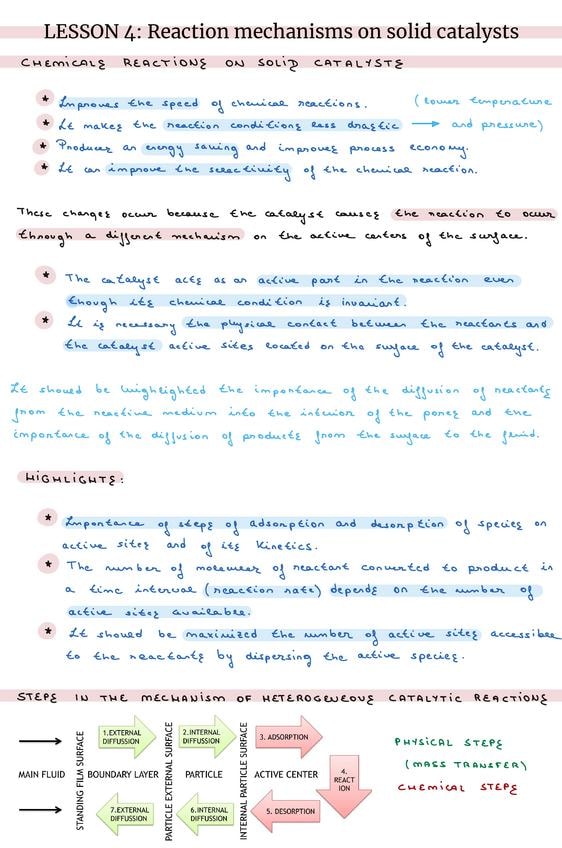 LESSON 4: Reaction mechanisms on solid catalysts
CHEMICALS REACTIONS ON SOLID CATALYSTS
* Improves the speed of chemical reactions. (lower temperature
* It makes the reaction conditions less drastic → and pressure)
* Produces an energy saving and improves process economy.
* It can improve the selectivity of the chemical reaction.
These changes occur because the catalyst causes the reaction to occur
through a different mechanism on the active centers of the surface.
* The catalyst acts as an active part in the reaction even
though its chemical condition is invariant.
* It is necessary the physical contact between the reactants and
the catalyst active sites located on the surface of the catalyst.
It should be highlighted the importance of the diffusion of reactants
from the reactive medium into the interior of the pores and the
importance of the diffusion of products from the surface to the fluid.
HIGHLIGHTS:
* Importance of steps of adsorption and desorption of species on
active sites and of its kinetics.
* The number of molecules of reactant converted to product in
a time interval (reaction rate) depends on the number of
active sites available.
* It should be maximized the number of active sites accessible
to the reactants by dispersing the active species.
STEPS IN THE MECHANISM OF HETEROGENEOUS CATALYTIC REACTIONS
MAIN FLUID
STANDING FILM SURFACE
1.EXTERNAL
DIFFUSSION
BOUNDARY LAYER
7.EXTERNAL
DIFFUSSION
PARTICLE EXTERNAL SURFACE
2.INTERNAL
DIFFUSSION
PARTICLE
6.INTERNAL
DIFFUSSION
INTERNAL PARTICLE SURFACE
3. ADSORPTION
ACTIVE CENTER
5. DESORPTION
4.
REACT
ION
PHYSICAL STEPS
(MASS TRANSFER)
CHEMICAL STEPS